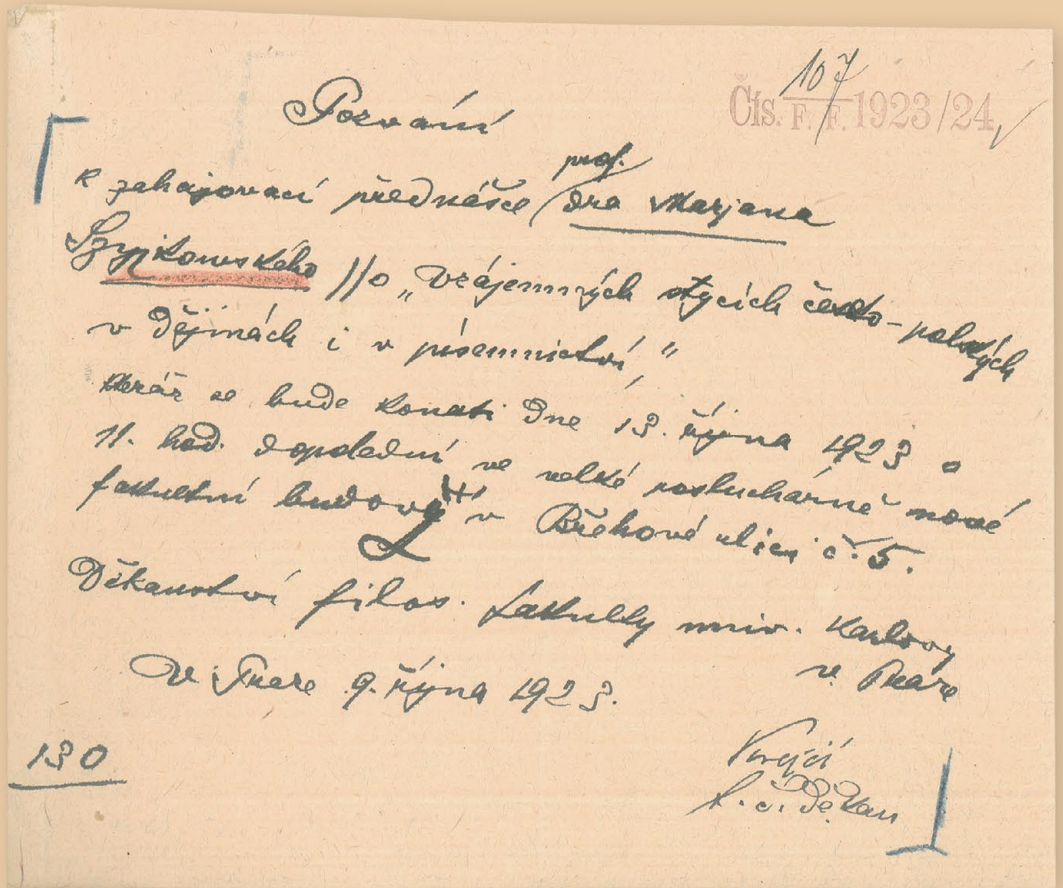 Čís. 107 F. F. 1923/24
Pozvání
prof.
k zahajovací přednášce dra Marjana
Szyjkowského o „vzájemných stycích česko-polských
v dějinách i v písemnictví“,
kteráž se bude konati dne 13. října 1923 o
11. hod. dopolední ve velké posluchárně nové
fakultní budovy v Břehové ulici č. 5.
Děkanství filos. fakulty univ. Karlovy
v Praze
V Praze 9. října 1923.
130
Krejčí
t. č. děkan